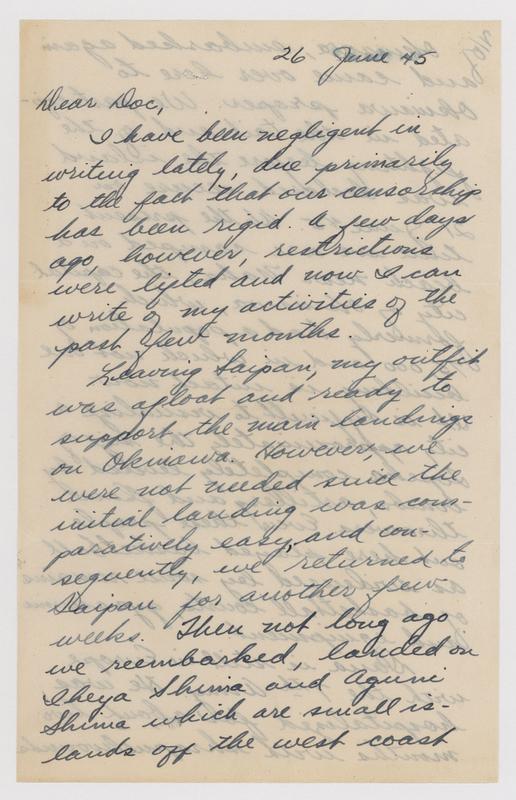 26 June 45
Dear Doc,
I have been negligent in
writing lately, due primarily
to the fact that our censorship
has been rigid. A few days
ago, however, restrictions
were lifted and now I can
write of my activities of the
past few months.
Leaving Saipan, my outfit
was afloat and ready to
support the main landings
on Okinawa. However, we
were not needed since the
initial landing was com-
paratively easy, and con-
sequently, we returned to
Saipan for another few
weeks. Then not long ago
we reembarked, landed on
Iheya Shima and Aguni
Shima which are small is-
lands off the west coast